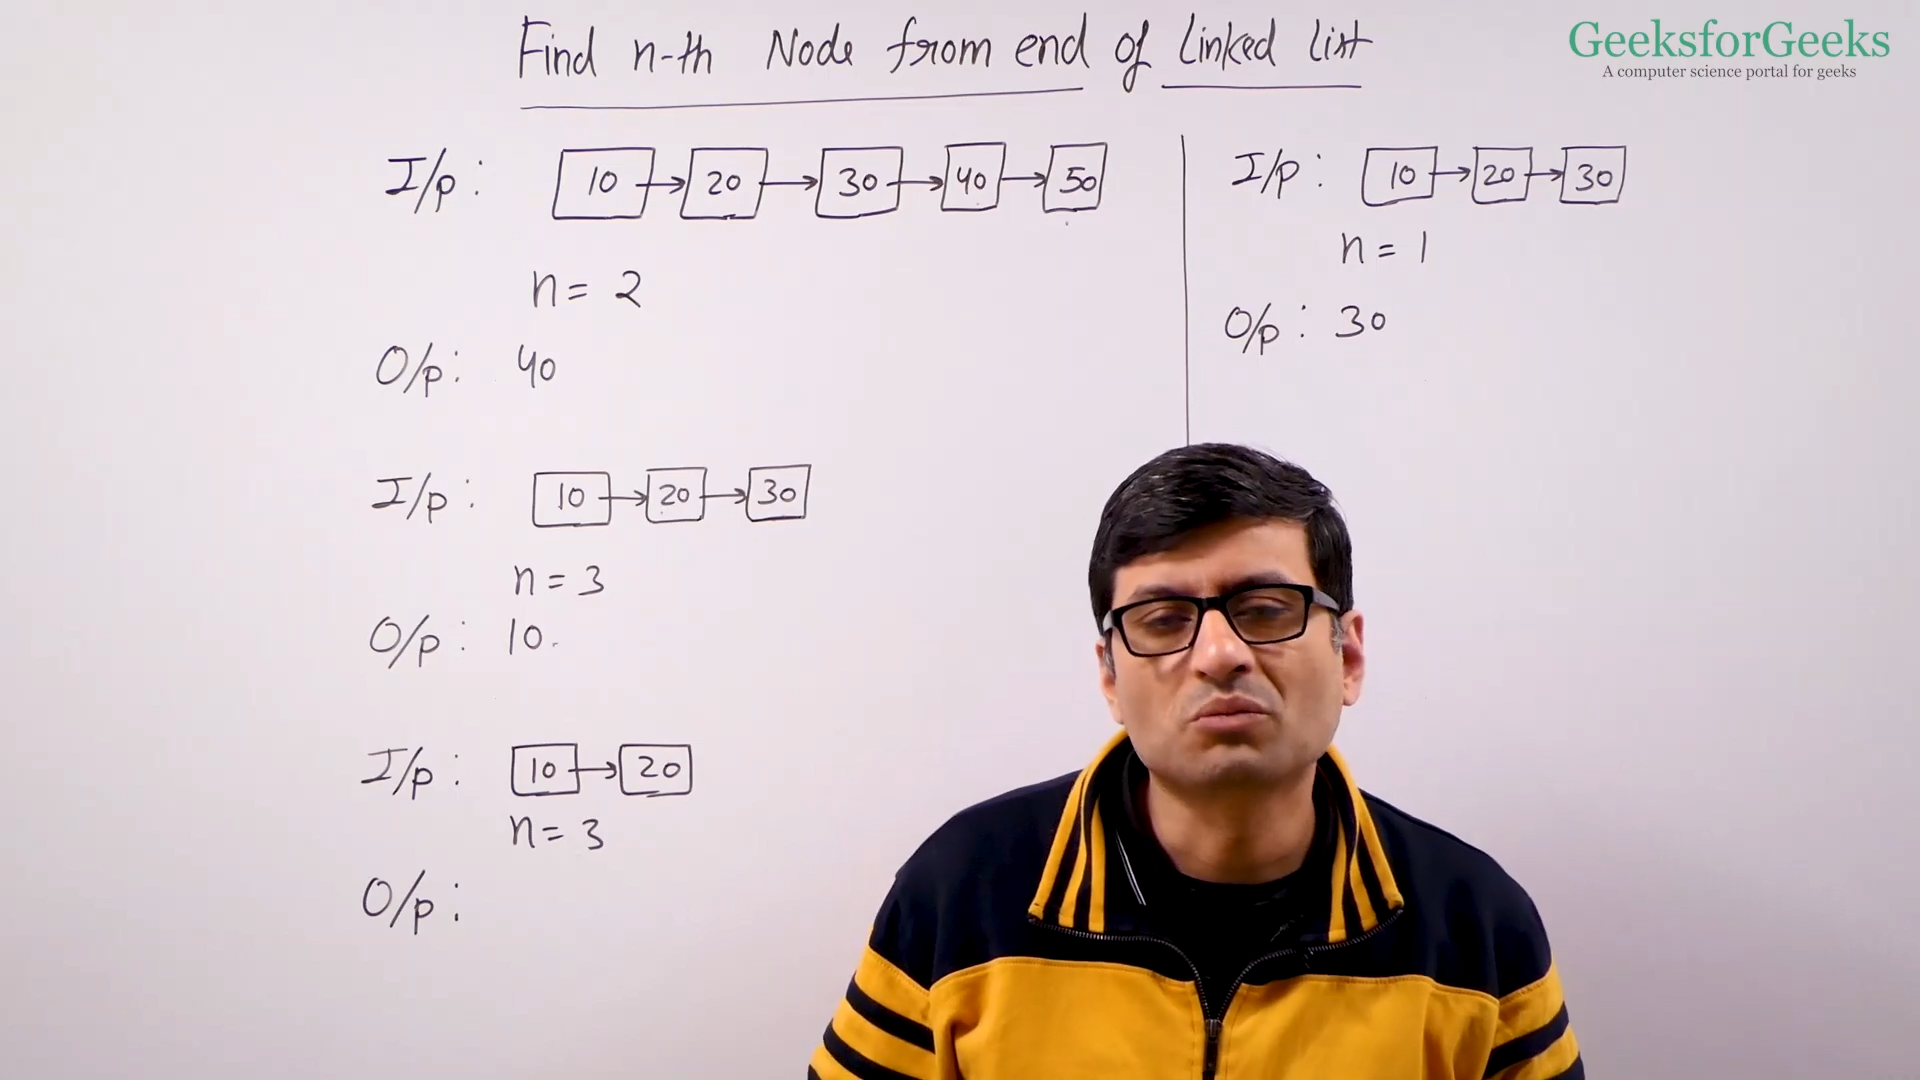 Find n-th Node from end of Linked List
GeeksforGeeks
A computer science portal for geeks
I/p : 10 → 20 → 30 → 40 → 50
n = 2
O/p : 40
I/p : 10 → 20 → 30
n = 3
O/p : 10
I/p : 10 → 20
n = 3
O/p :
I/p : 10 → 20 → 30
n = 1
O/p : 30